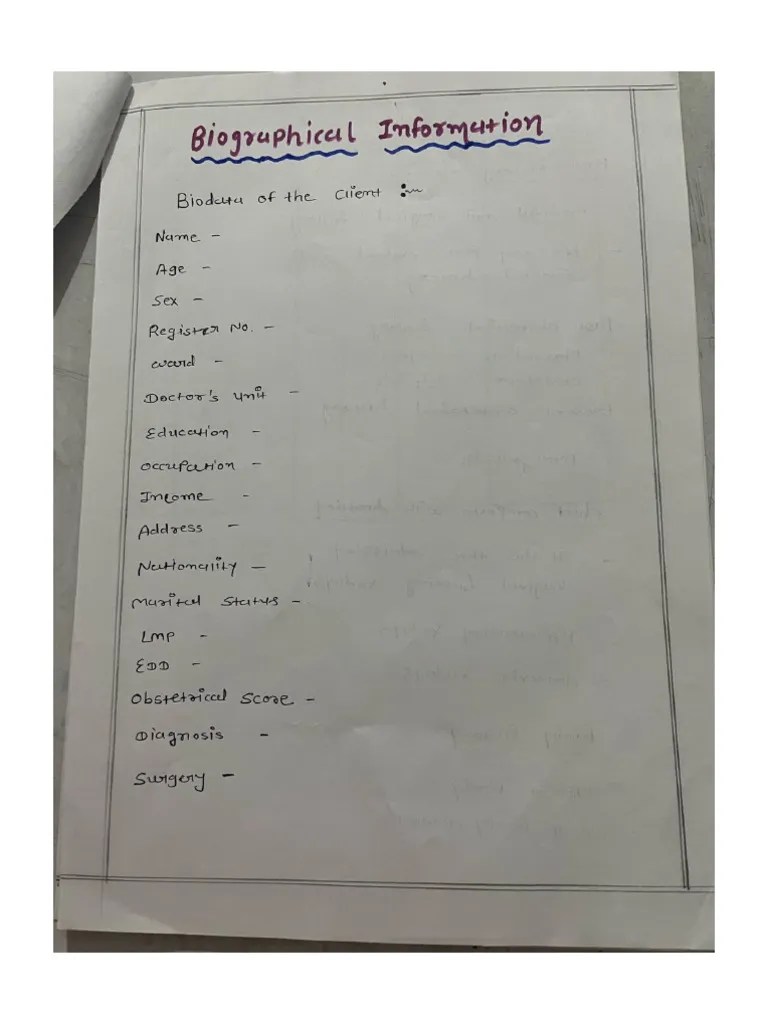 Biographical Information
Biodata of the Client :~
Name -
Age -
Sex -
Register No. -
Ward -
Doctor's Unit -
Education -
Occupation -
Income -
Address -
Nationality -
Marital Status -
LMP -
EDD -
Obstetrical Score -
Diagnosis -
Surgery -